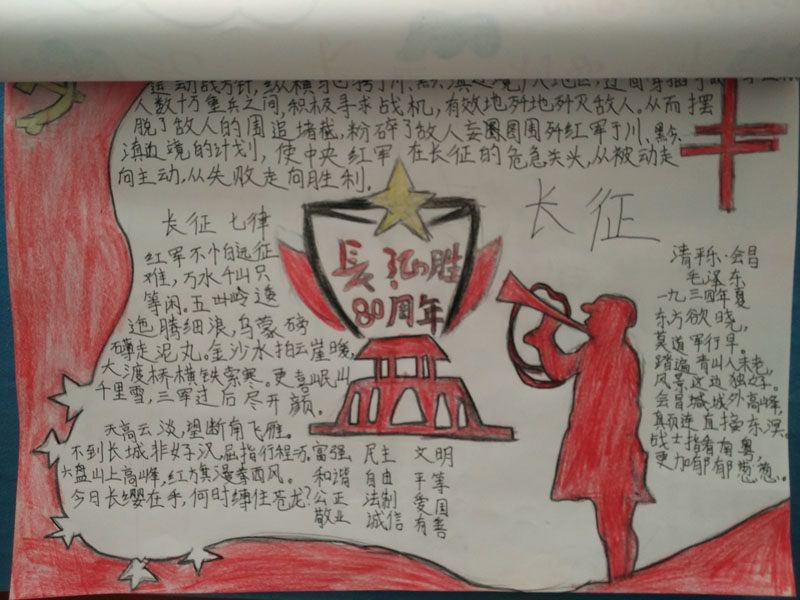 人数十万重兵之间,积极寻求战机,有效地歼地歼灭敌人。从而摆
脱了敌人的围追堵截,粉碎了敌人妄图围歼红军于川、黔、
滇边境的计划,使中央红军在长征的危急关头,从被动走
向主动,从失败走向胜利.
长征
长征 七律
红军不怕远征
难,万水千山只
等闲.五岭逶
迤腾细浪,乌蒙磅
礴走泥丸。金沙水拍云崖暖,
大渡桥横铁索寒。更喜岷山
千里雪,三军过后尽开颜.
天高云淡,望断南飞雁。
不到长城非好汉,屈指行程二万.
六盘山上高峰,红旗漫卷西风。
今日长缨在手,何时缚住苍龙?
長 胜
80周年
富强 民主 文明
和谐 自由 平等
公正 法制 爱国
敬业 诚信 有善
清平乐·会昌
毛泽东
一九三四年夏
东方欲晓,
莫道军行早。
踏遍青山人未老,
风景这边独好。
会昌城城外高峰,
真页连直接东溟。
战士指看南粤,
更加郁郁葱葱。